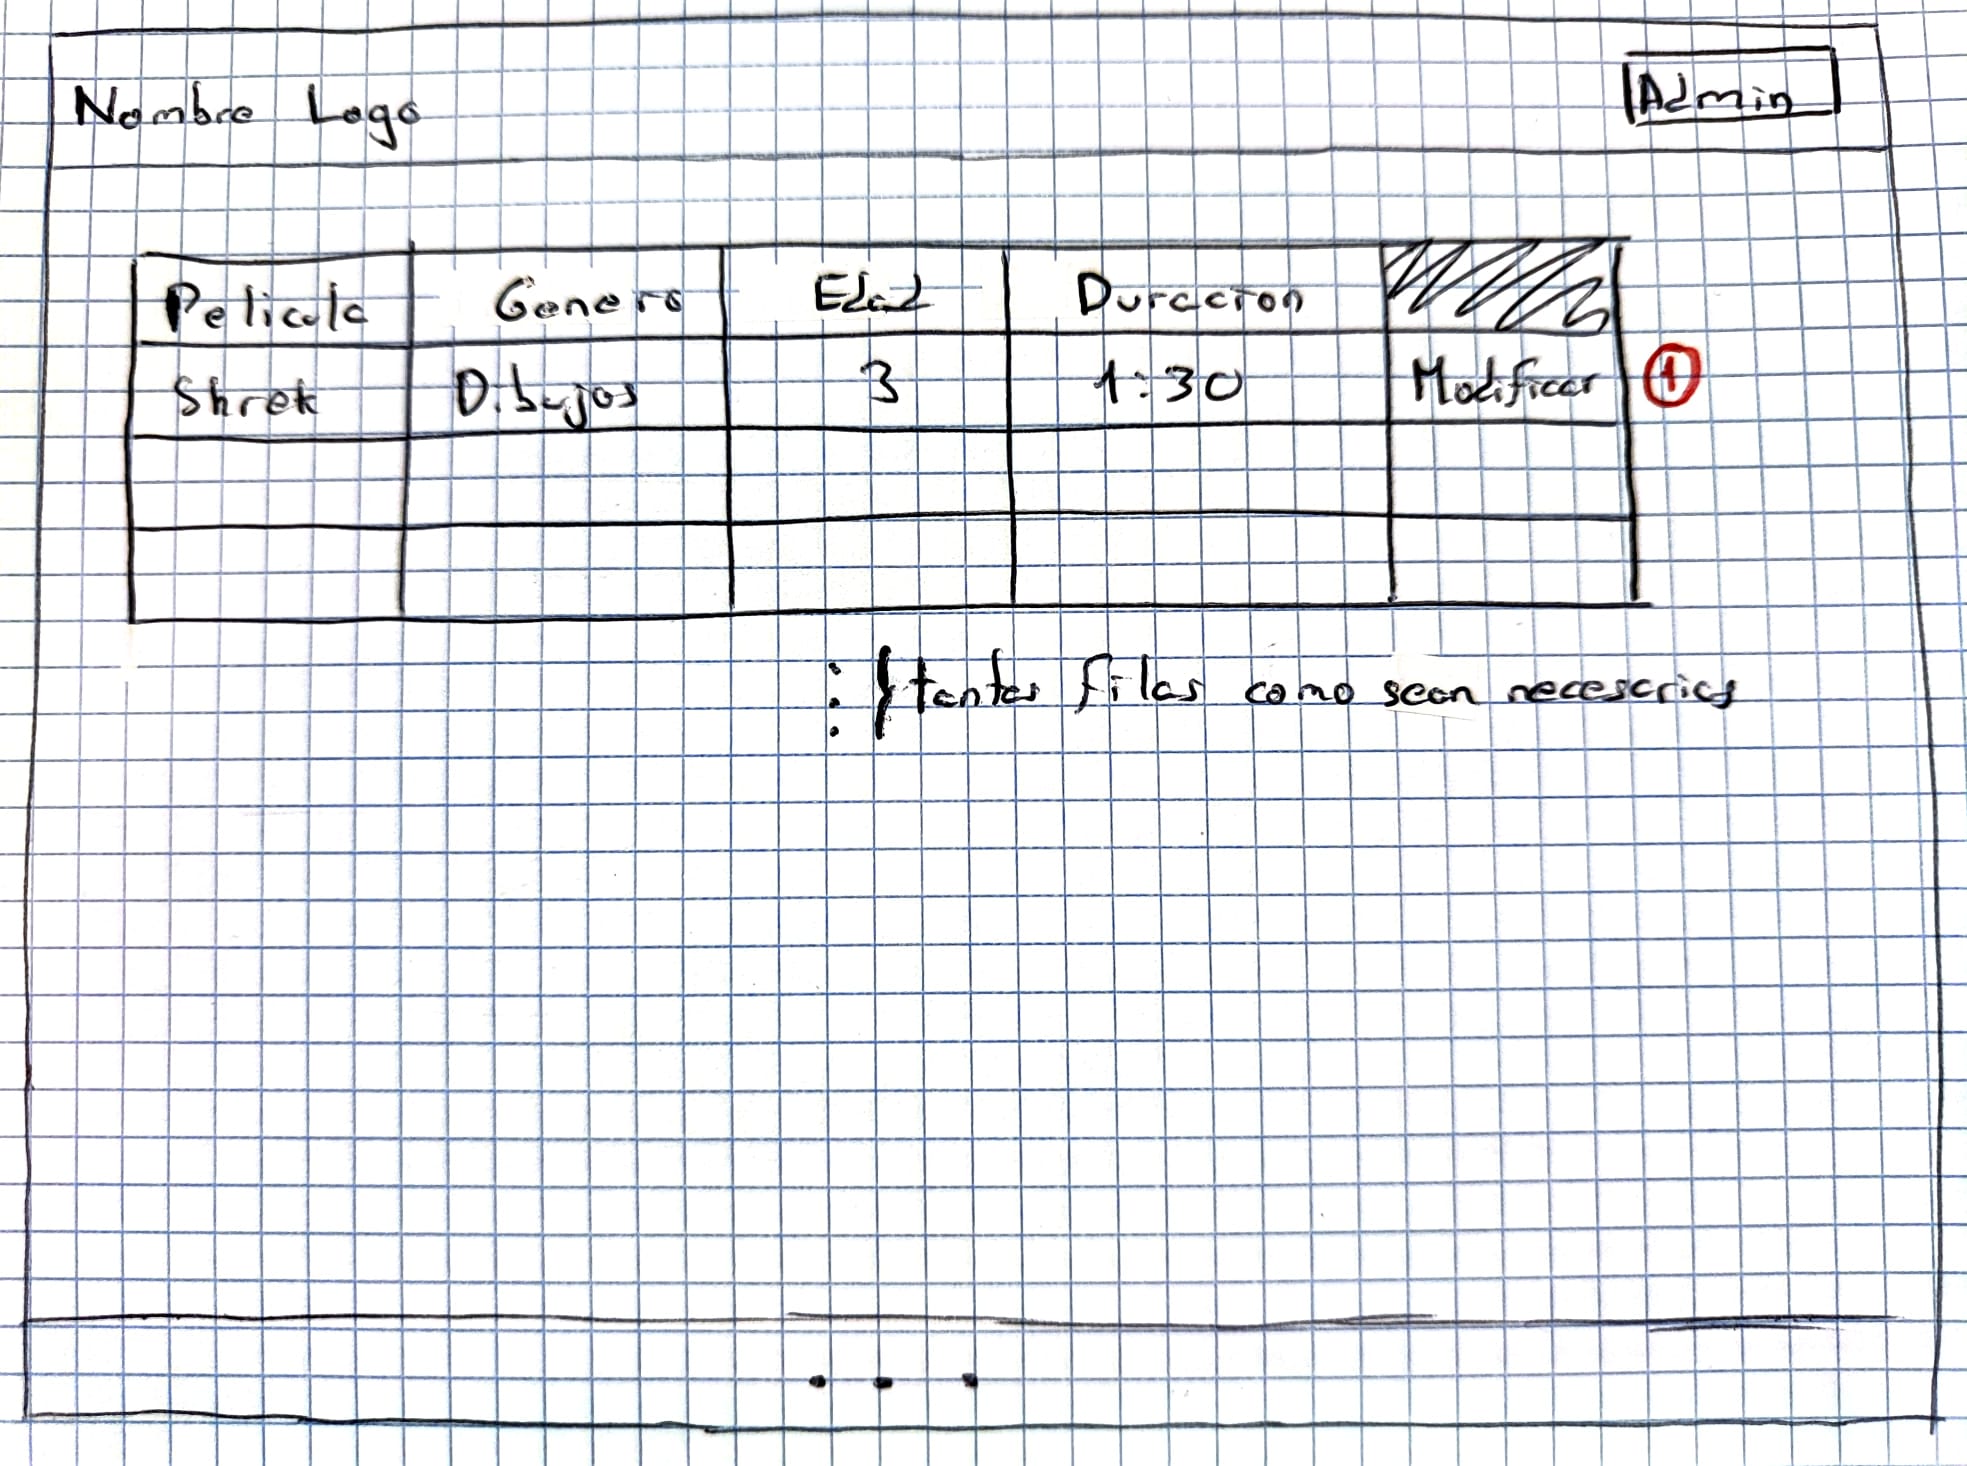 Nombre Logo
Admin
Pelicula Genero Edad Duracion
Shrek Dibujos 3 1:30 Modificar 1
⋮ } tantas filas como sean necesarias
...